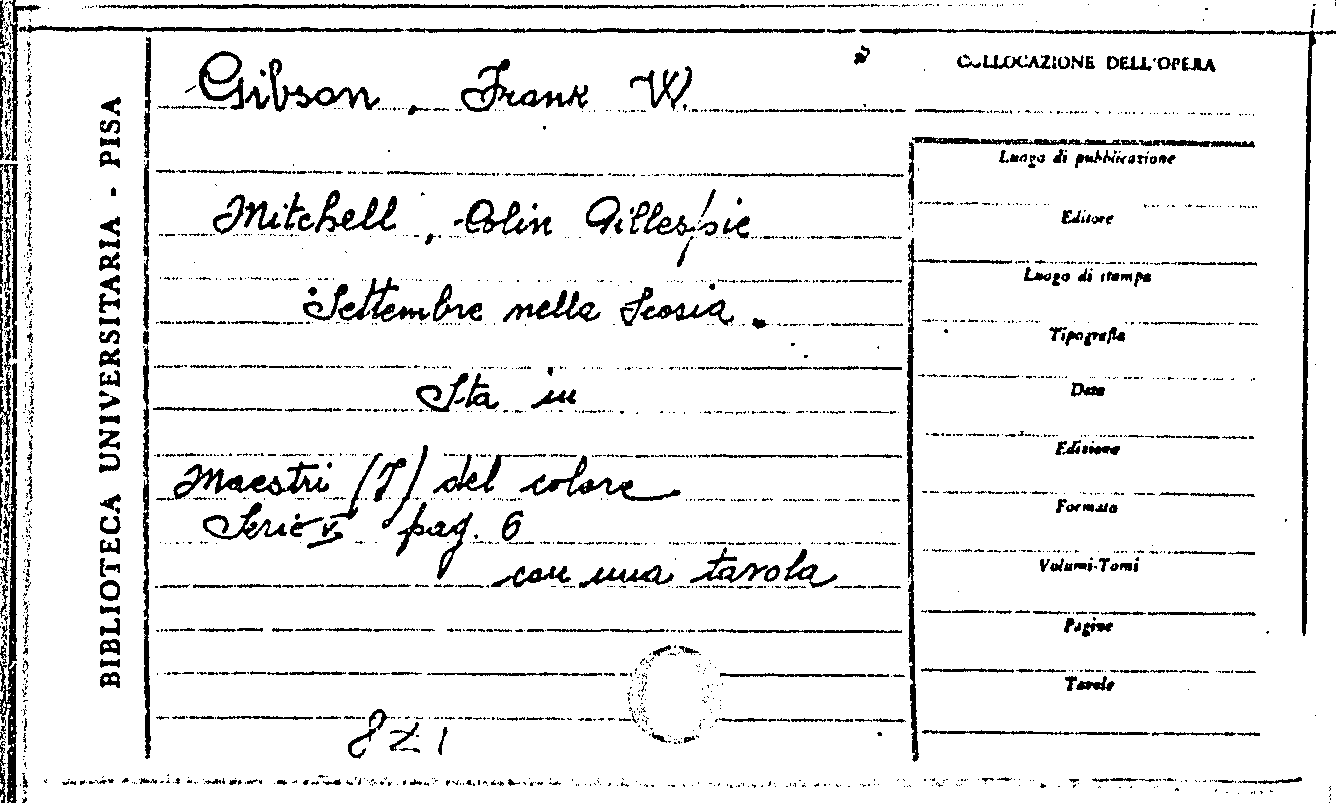 BIBLIOTECA UNIVERSITARIA - PISA
Gibson, Frank W.
Mitchell, Colin Gillespie
Settembre nella Scozia.
Sta in
Maestri (I) del colore
Serie V pag. 6
con una tavola
COLLOCAZIONE DELL'OPERA
Luogo di pubblicazione
Editore
Luogo di stampa
Tipografia
Data
Edizione
Formato
Volumi-Tomi
Pagine
Tavole